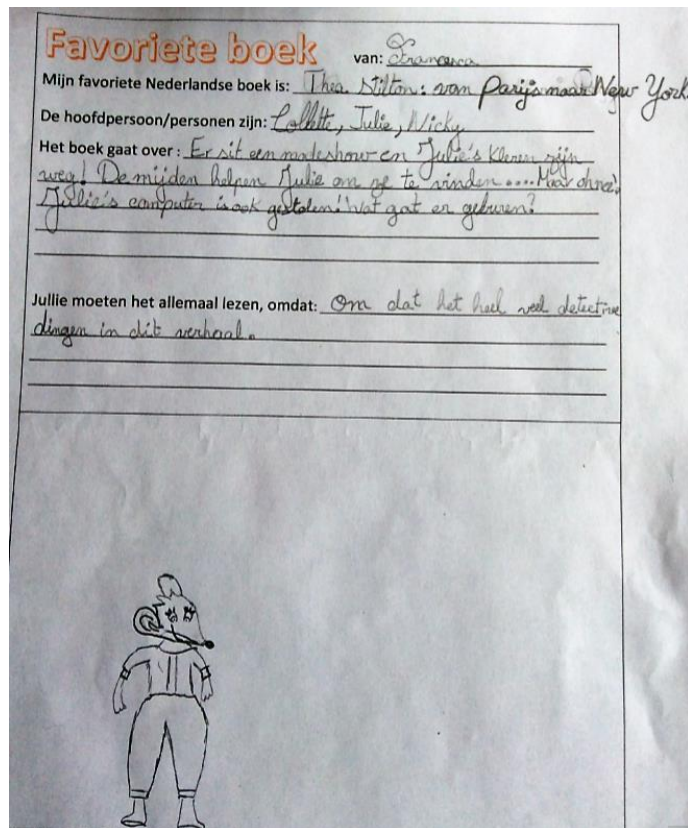 Favoriete boek van: Francesca
Mijn favoriete Nederlandse boek is: Thea Stilton: van Parijs naar New York
De hoofdpersoon/personen zijn: Collette, Julie, Nicky
Het boek gaat over: Er sit een modeshow en Julie's kleren zijn
weg! De mijden helpen Julie om ze te vinden .... Maar ohnee!
Julie's computer is ook gestolen! Wat gat er geburen?
Jullie moeten het allemaal lezen, omdat: Om dat het heel veel detective
dingen in dit verhaal.